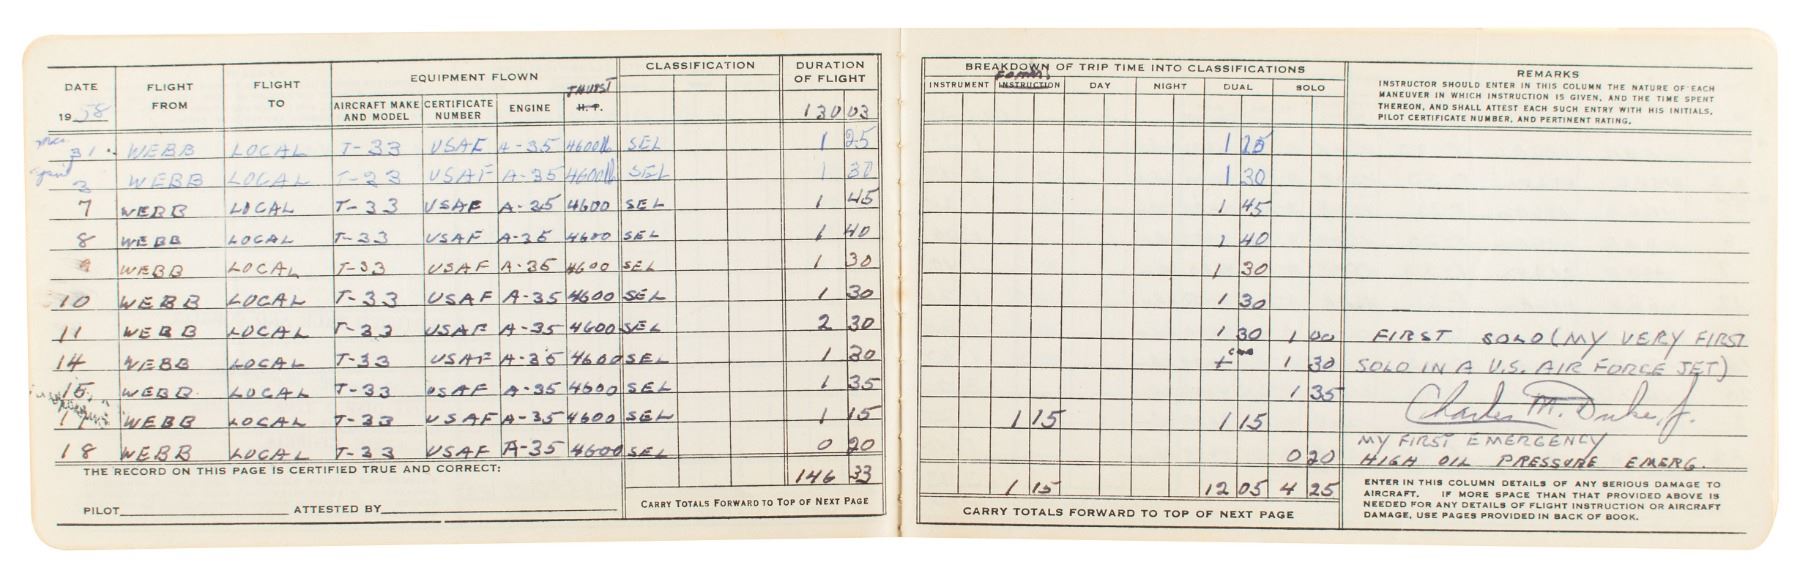 DATE
19 58
FLIGHT FROM
FLIGHT TO
EQUIPMENT FLOWN
AIRCRAFT MAKE AND MODEL
CERTIFICATE NUMBER
ENGINE
THURST
H.P.
CLASSIFICATION
DURATION OF FLIGHT
130 03
31 WEBB LOCAL T-33 USAF A-35 4600lb SEL 1 25
2 WEBB LOCAL T-33 USAF A-35 4600lb SEL 1 30
7 WEBB LOCAL T-33 USAF A-35 4600 SEL 1 45
8 WEBB LOCAL T-33 USAF A-35 4600 SEL 1 40
9 WEBB LOCAL T-33 USAF A-35 4600 SEL 1 30
10 WEBB LOCAL T-33 USAF A-35 4600 SEL 1 30
11 WEBB LOCAL T-33 USAF A-35 4600 SEL 2 30
14 WEBB LOCAL T-33 USAF A-35 4600 SEL 1 30
15 WEBB LOCAL T-33 USAF A-35 4600 SEL 1 35
17 WEBB LOCAL T-33 USAF A-35 4600 SEL 1 15
18 WEBB LOCAL T-33 USAF A-35 4600 SEL 0 20
THE RECORD ON THIS PAGE IS CERTIFIED TRUE AND CORRECT:
146 33
PILOT ATTESTED BY
CARRY TOTALS FORWARD TO TOP OF NEXT PAGE
BREAKDOWN OF TRIP TIME INTO CLASSIFICATIONS
INSTRUMENT INSTRUCTION DAY NIGHT DUAL SOLO
REMARKS
INSTRUCTOR SHOULD ENTER IN THIS COLUMN THE NATURE OF EACH
MANEUVER IN WHICH INSTRUCTION IS GIVEN, AND THE TIME SPENT
THEREON, AND SHALL ATTEST EACH SUCH ENTRY WITH HIS INITIALS,
PILOT CERTIFICATE NUMBER, AND PERTINENT RATING.
1 25
1 30
1 45
1 40
1 30
1 30
1 30 1 00 FIRST SOLO (MY VERY FIRST
1 30 SOLO IN A U.S. AIR FORCE JET)
1 35
Charles M. Duke, Jr.
1 15 1 15
MY FIRST EMERGENCY
0 20 HIGH OIL PRESSURE EMERG.
1 15 12 05 4 25
CARRY TOTALS FORWARD TO TOP OF NEXT PAGE
ENTER IN THIS COLUMN DETAILS OF ANY SERIOUS DAMAGE TO
AIRCRAFT. IF MORE SPACE THAN THAT PROVIDED ABOVE IS
NEEDED FOR ANY DETAILS OF FLIGHT INSTRUCTION OR AIRCRAFT
DAMAGE, USE PAGES PROVIDED IN BACK OF BOOK.